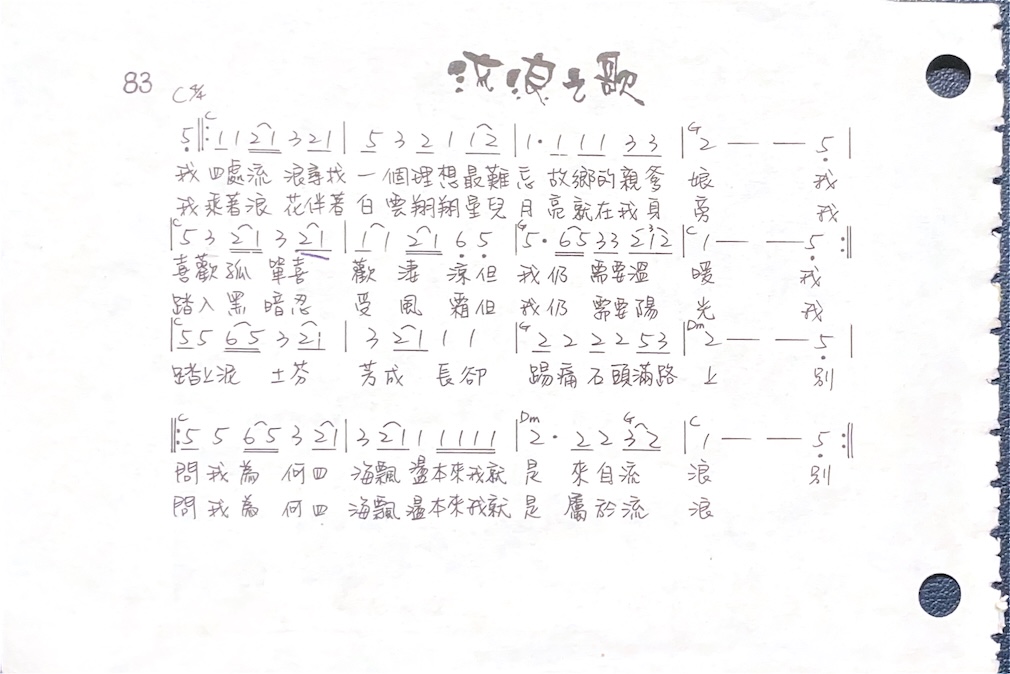 83
流浪之歌
C 4/4
C G
5 ‖: 1 1 2 1 3 2 1 | 5 3 2 1 1 2 | 1 · 1 1 1 3 3 | 2 — — 5 |
我四處流 浪尋找 一個理想最難忘 故鄉的親爹 娘 我
我乘著浪 花伴著 白雲翔翔星兒 月亮就在我身 旁 我
C G C
| 5 3 2 1 3 2 1 | 1 1 2 1 6 5 | 5 · 6 5 3 3 2 3 1 2 | 1 — — 5 :‖
喜歡孤 單喜 歡淒 涼但 我仍 需要溫 暖 我
踏入黑 暗忍 受風 霜但 我仍 需要陽 光 我
C G Dm
| 5 5 6 5 3 2 1 | 3 2 1 1 1 | 2 2 2 2 5 3 | 2 — — 5 |
踏上泥 土芬 芳成 長卻 踢痛石頭滿路 上 別
C Dm G C
‖: 5 5 6 5 3 2 1 | 3 2 1 1 1 1 1 1 | 2 · 2 2 3 2 | 1 — — 5 :‖
問我為 何四 海飄盪本來我就 是 來自流 浪 別
問我為 何四 海飄盪本來我就 是 屬於流 浪